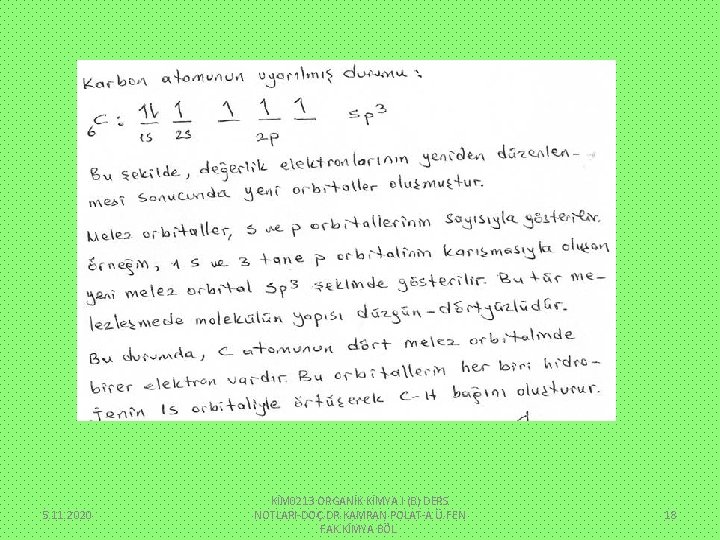 Karbon atomunun uyarılmış durumu :
6C : 1l 1 1 1 1 sp3
1s 2s 2p
Bu şekilde, değerlik elektronlarının yeniden düzenlen-
mesi sonucunda yeni orbitaller oluşmuştur.
Melez orbitaller, s ve p orbitallerinin sayısıyla gösterilir.
Örneğin, 1 s ve 3 tane p orbitalinin karışmasıyla oluşan
yeni melez orbital sp3 şeklinde gösterilir. Bu tür me-
lezleşmede molekülün yapısı düzgün-dörtyüzlüdür.
Bu durumda, C atomunun dört melez orbitalinde
birer elektron vardır. Bu orbitallerin her biri hidro-
jenin 1s orbitaliyle örtüşerek C-H bağını oluşturur.
5.11.2020
KİM0213 ORGANİK KİMYA I (B) DERS
NOTLARI-DOÇ.DR.KAMRAN POLAT-A.Ü.FEN
FAK.KİMYA BÖL
18